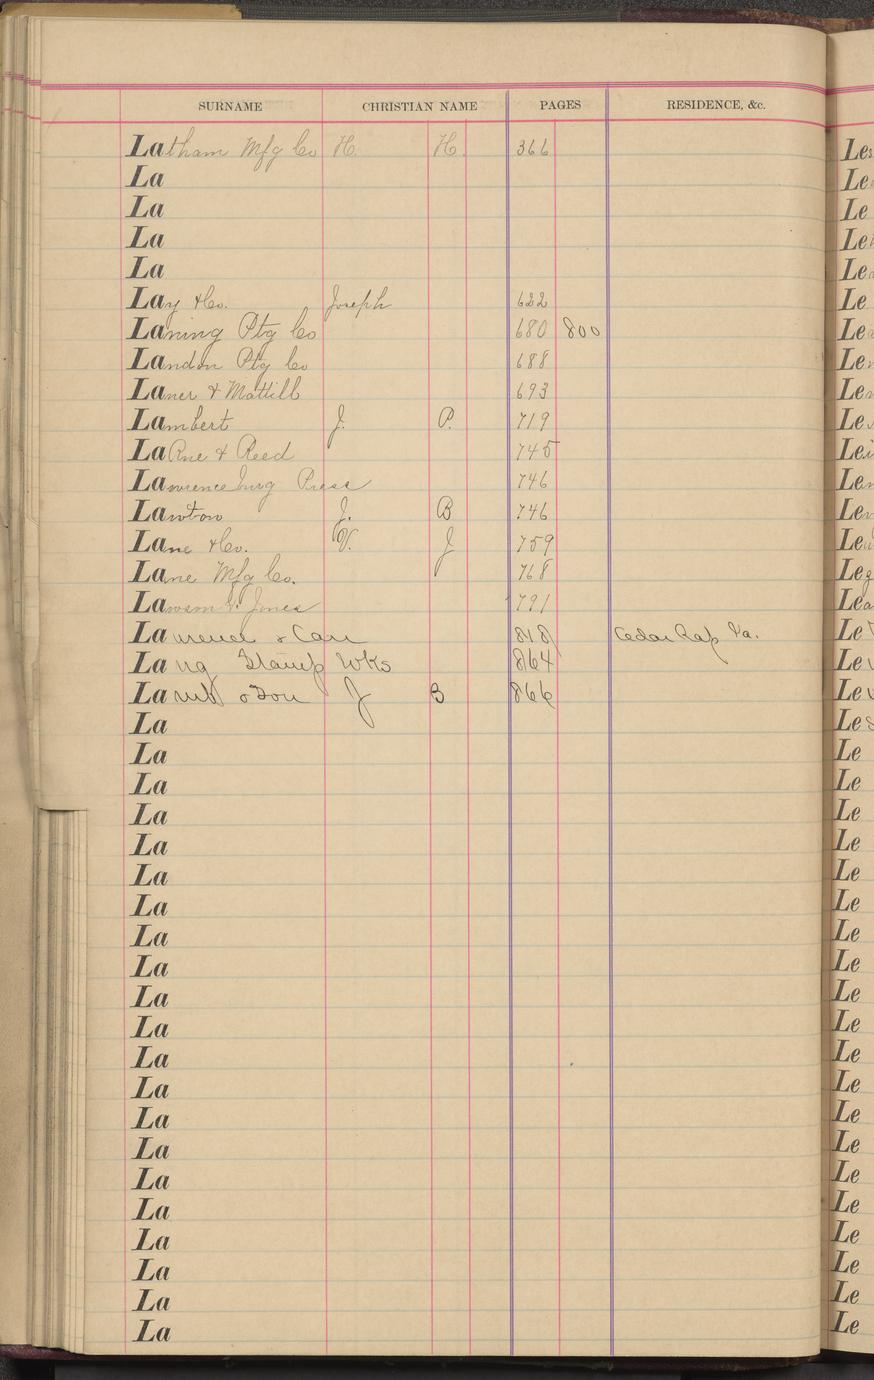 SURNAME CHRISTIAN NAME PAGES RESIDENCE, &c.
Latham Mfg Co H. H. 366
La
La
La
La
Lay & Co. Joseph 622
Laning Ptg Co 680 800
Landon Ptg Co 688
Laner & Mattill 693
Lambert J. P. 719
LaRue & Reed 745
Lawrenceburg Press 746
Lawton J. B 746
Lane & Co. V. J 759
Lane Mfg Co. 768
Lawson & Jones 791
Laurence & Carr 818 Cedar Rap Ia.
Lang Stamp Wks 864
Lamb & Son J B 866
La
La
La
La
La
La
La
La
La
La
La
La
La
La
La
La
La
La
La
La
La
Les
Le
Le
Le
Le
Le
Le
Le
Le
Le
Lei
Le
Le
Le
Leg
Lea
Le
Le
Le
Le
Le
Le
Le
Le
Le
Le
Le
Le
Le
Le
Le
Le
Le
Le
Le
Le
Le
Le
Le
Le